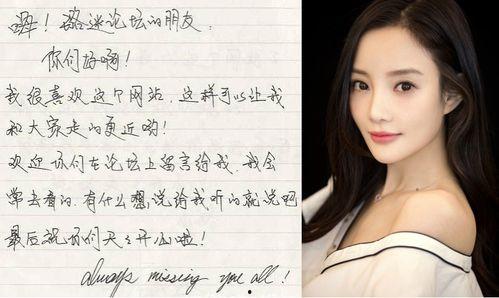 嗨！璐迷论坛的朋友：
你们好啊！
我很喜欢这个网站，这样可以让我
和大家走的更近哟！
欢迎你们在论坛上留言给我，我会
常去看的，有什么想说给我听的就说吧
最后祝你们天々开心啦！
always missing you all!